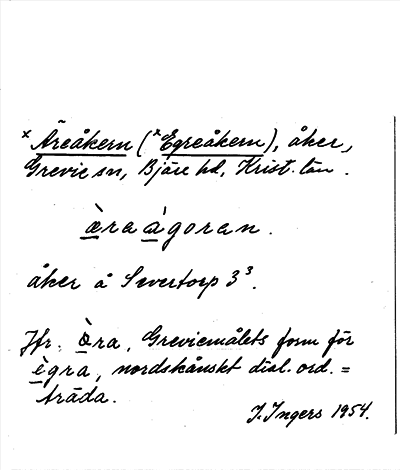 ˣÄreåkern (ˣEgreåkern), åker,
Grevie sn, Bjäre hd, Krist. län.
æ̀ra ågoran.
åker å Sevetorp 3³.
Jfr. æ̀ra, Greviemålets form för
ègra, nordskånskt dial. ord. =
träda.
I. Ingers 1954.